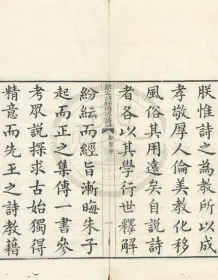 朕惟詩之為教所以成
孝敬厚人倫美教化移
風俗其用遠矣自說詩
者各以其學行世釋解
紛紜而經旨漸晦朱子
起而正之集傳一書參
考眾說探求古始獨得
精意而先王之詩教藉